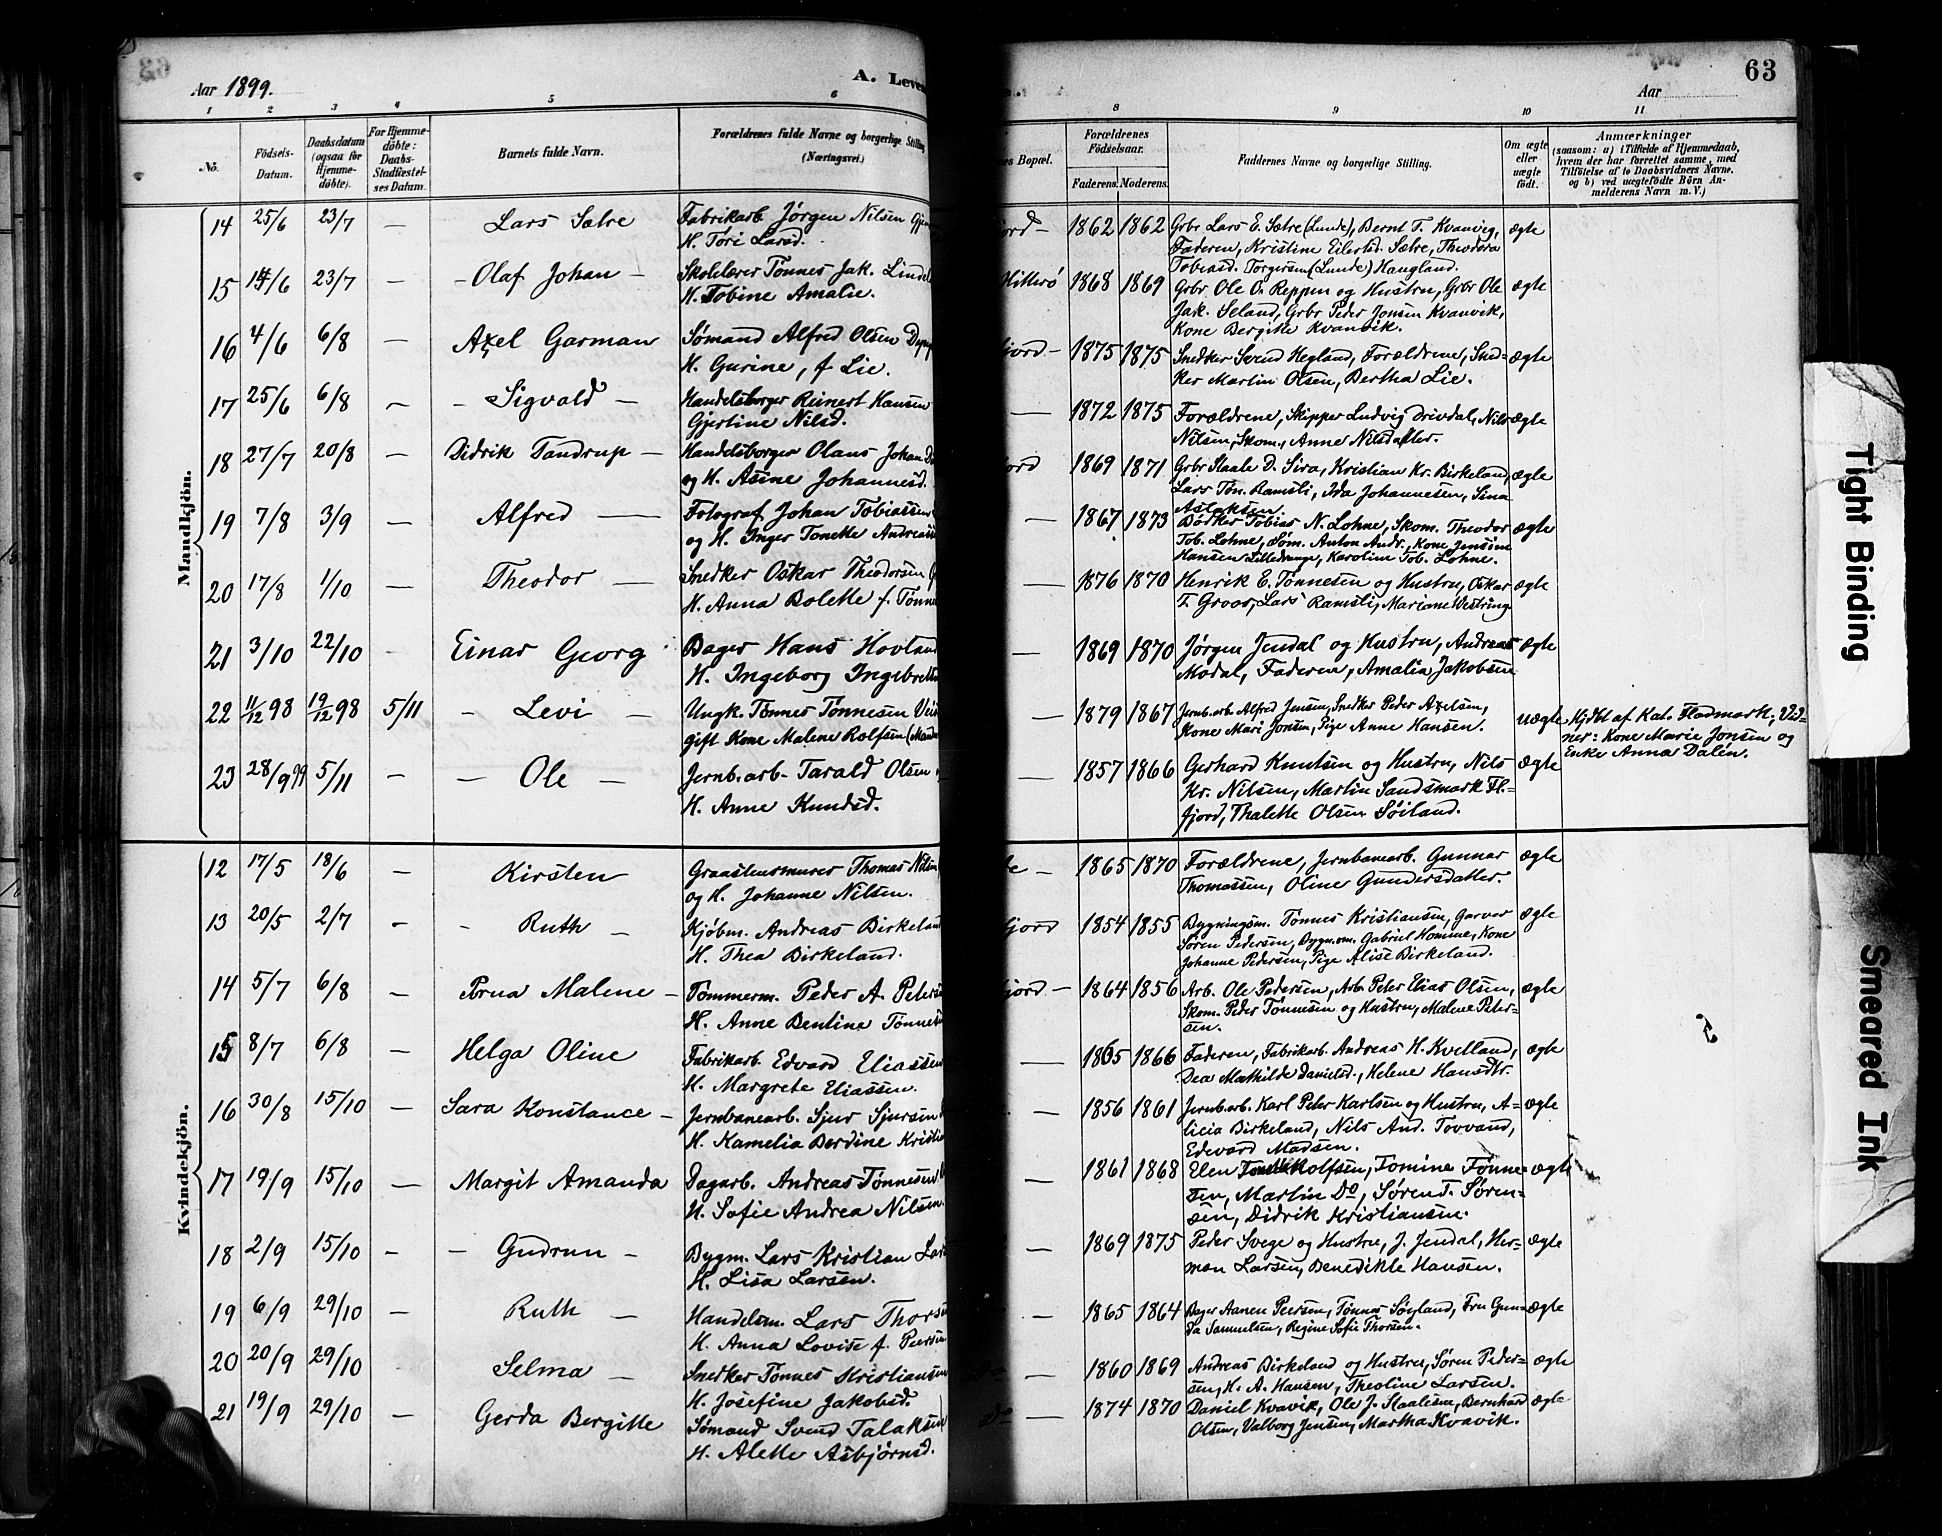 63
Aar 1899.
A. Leve
Aar
1 2 3 4 5 6 8 9 10 11
No.
Födsels-
Datum.
Daabsdatum
(ogsaa for
Hjemme-
døbte).
For Hjemme-
døbte:
Daabs-
Stadfæstel-
ses Datum.
Barnets fulde Navn.
Forældrenes fulde Navne og borgerlige Stilling
(Næringsvei.)
es Bopæl.
Forældrenes
Födselsaar.
Faderens. Moderens.
Faddernes Navne og borgerlige Stilling.
Om ægte
eller
uægte
födt.
Anmærkninger
(saasom: a) i Tilfælde af Hjemmedaab,
hvem der har forrettet samme, med
Tilföielse af to Daabsvidners Navne.
og b) ved uægtefödte Börn An-
melderens Navn m. V.)
Mandkjön.
14 25/6 23/7 — Lars Sælre Fabrikarb Jørgen Nilsen Gje
H. Tori Larsd.
jord — 1862 1862 Grbr Lars E. Sætre (Lunde), Bernt T. Kvanvig, ægte
Faderen, Kristine Eilertsd. Sætre, Theodora
Tobiasd. Torgersen (Lunde) Haugland.
15 14/6 23/7 — - Olaf Johan — Skolelærer Tønnes Jak. Lindel
H. Tobine Amalie.
Hitterø 1868 1869 Grbr Ole O. Reppen og Hustru, Grbr Ole ægte
Jak. Seland, Grbr Peder Jonsen Kvanvik,
Kone Bergitte Kvanvik.
16 4/6 6/8 — Axel Garman Sømand Alfred Olsen
H. Gurine, f Lie.
fjord — 1875 1875 Snedker Svend Hegland, Forældrene, Sned- ægte
ker Martin Olsen, Bertha Lie.
17 25/6 6/8 — - Sigvald — Handelsborger Reinert Hansen
Gjertine Nilsd.
— 1872 1875 Forældrene, Skipper Ludvig Drivdal, Nils ægte
Nilsen, Skom., Anne Nilsdatter.
18 27/7 20/8 — Didrik Tandrup — Handelsborger Olaus Johan
og H. Asine Johannesd.
jord 1869 1871 Grbr Staale D. Sira, Kristian Kr. Birkeland, ægte
Lars Tøn. Ramsli, Ida Johannesen, Sina
Aslaksen.
19 7/8 3/9 — Alfred — Fotograf Johan Tobiassen
og H. Inger Tonette Andreas
— 1867 1873 Bødker Tobias N. Lohne, Skom. Theodor ægte
Tob. Lohne, Søm. Anton Andr., Kone Jensine
Hansen Lilledrange, Karoline Tob. Lohne.
20 17/8 1/10 — Theodor — Snedker Oskar Theodorsen
H. Anna Bolette f. Tønne
— 1876 1870 Henrik E. Tønnesen og Hustru, Oskar ægte
T. Groos, Lars Ramsli, Mariane Westring
21 3/10 22/10 - Einar Georg Bager Hans Hovland
H. Ingeborg Ingebrets
— 1869 1870 Jørgen Jendal og Hustru, Andreas ægte
Modal, Faderen, Amalia Jakobsen
22 11/12 98 19/12 98 5/11 - Levi — Ungk. Tønnes Tønnesen
gift Kone Malene Rolfsen
— 1879 1867 Jernb.arb. Alfred Jensen, Snedker Peder Axelsen, uægte Hjdbt af Kat. Flodmark; Vid-
Kone Mari Jonsen, Pige Anne Hansen. ner: Kone Marie Jonsen og
Enke Anna Dalén.
23 28/9 99 5/11 — — Ole — Jernb.arb. Tarald Olsen
H. Anne Knudsd.
— 1857 1866 Gerhard Knutsen og Hustru, Nils ægte
Kr. Nilsen, Martin Sandsmark Fl-
fjord, Thalette Olsen Søiland.
Kvindekjön.
12 17/5 18/6 — Kirsten Graastensmurer Thomas Nilsen
og H. Johanne Nilsen.
— 1865 1870 Forældrene, Jernbanearb. Gunnar ægte
Thomassen, Oline Gundersdatter.
13 20/5 2/7 - - Ruth — Kjøbm. Andreas Birkeland
H. Thea Birkeland.
fjord 1854 1855 Bygningsm. Tønnes Kristiansen, Garver ægte
Søren Pedersen, Bygn.sm. Gabriel Homme, Kone
Johanne Pedersen, Pige Alise Birkeland.
14 5/7 6/8 — Arna Malene — Tømmerm. Peder A. Peters
H. Anne Bentine Tønnes
fjord — 1864 1856 Arb. Ole Pedersen, Arb. Peter Elias Olsen, ægte
Skom. Peder Tønnesen og Hustru, Malene Peter-
sen.
15 8/7 6/8 — Helga Oline Fabrikarb. Edvard Eliassen
H. Margrete Eliassen.
— 1865 1866 Faderen, Fabrikarb. Andreas H. Kvelland, ægte
Dea Mathilde Danielsd., Helene Hansdtr.
16 30/8 15/10 — Sara Konstance — Jernbanearb. Sjur Sjursen
H. Kamelia Berdine Kristi
— 1856 1861 Jernb.arb. Karl Peter Karlsen og Hustru, A- ægte
licia Birkeland, Nils And. Tovvand,
Edvard Madsen.
17 19/9 15/10 — Margit Amanda Dagarb. Andreas Tønnesen
H. Sofie Andrea Nilsen.
— 1861 1868 Elen Rolfsen, Tomine Tønne- ægte
sen, Martin Do, Søren T. Søren-
sen, Didrik Kristiansen.
18 2/9 15/10 — — Gudrun — Bygm. Lars Kristian Lar
H. Lisa Larsen.
— 1869 1875 Peder Svege og Hustru, J. Jendal, Her- ægte
man Larsen, Benedikte Hansen.
19 6/9 29/10 — Ruth — Handelsm. Lars Thors
H. Anna Lovise f. Peersen
— 1865 1864 Bager Aanen Peersen, Tønnes Søyland, Fru Gun- ægte
da Samuelsen, Regine Sofie Thorsen.
20 20/9 29/10 Selma — Snedker Tønnes Kristiansen
H. Josefine Jakobsd.
Do — 1860 1869 Andreas Birkeland og Hustru, Søren Peder- ægte
sen, H. A. Hansen, Theoline Larsen.
21 19/9 29/10 — Gerda Bergitte Sømand Svend Talaksen
H. Alette Asbjørnsd.
Do — 1874 1870 Daniel Kvavik, Ole J. Staalesen, Bernhard ægte
Olsen, Valborg Jensen, Martha Kvavik.
Tight Binding
Smeared Ink